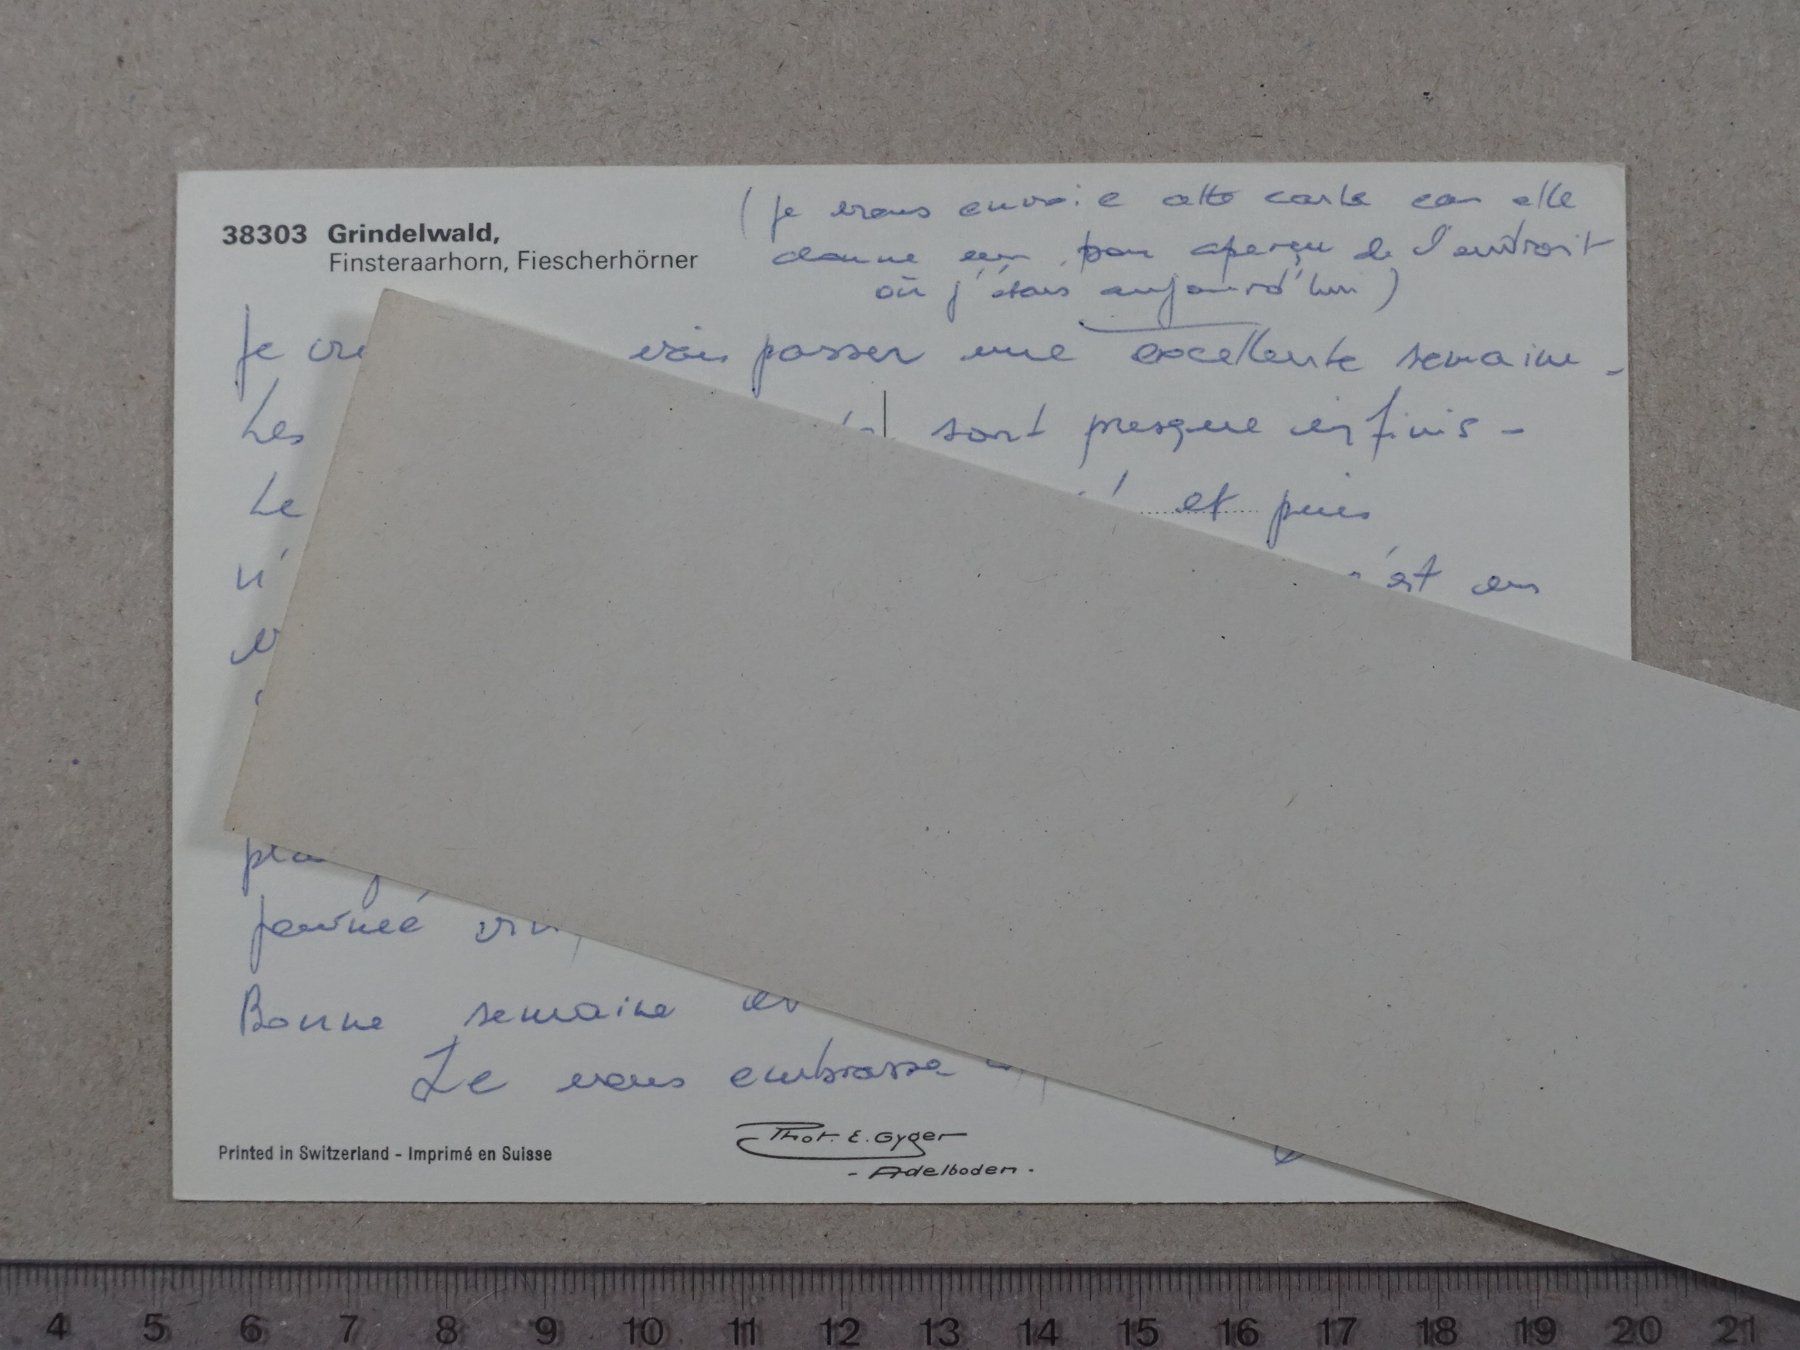 38303 Grindelwald,
Finsteraarhorn, Fiescherhörner
(Je vous envoie cette carte car elle
donne un bon aperçu de l'endroit
où j'étais aujourd'hui)
Je vais passer une excellente semaine.
Les sont presque infinis -
Le et puis
n' c'est en
journée
Bonne semaine
Je vous embrasse
Printed in Switzerland - Imprimé en Suisse
Phot. E. Gyger
- Adelboden -
4 5 6 7 8 9 10 11 12 13 14 15 16 17 18 19 20 21